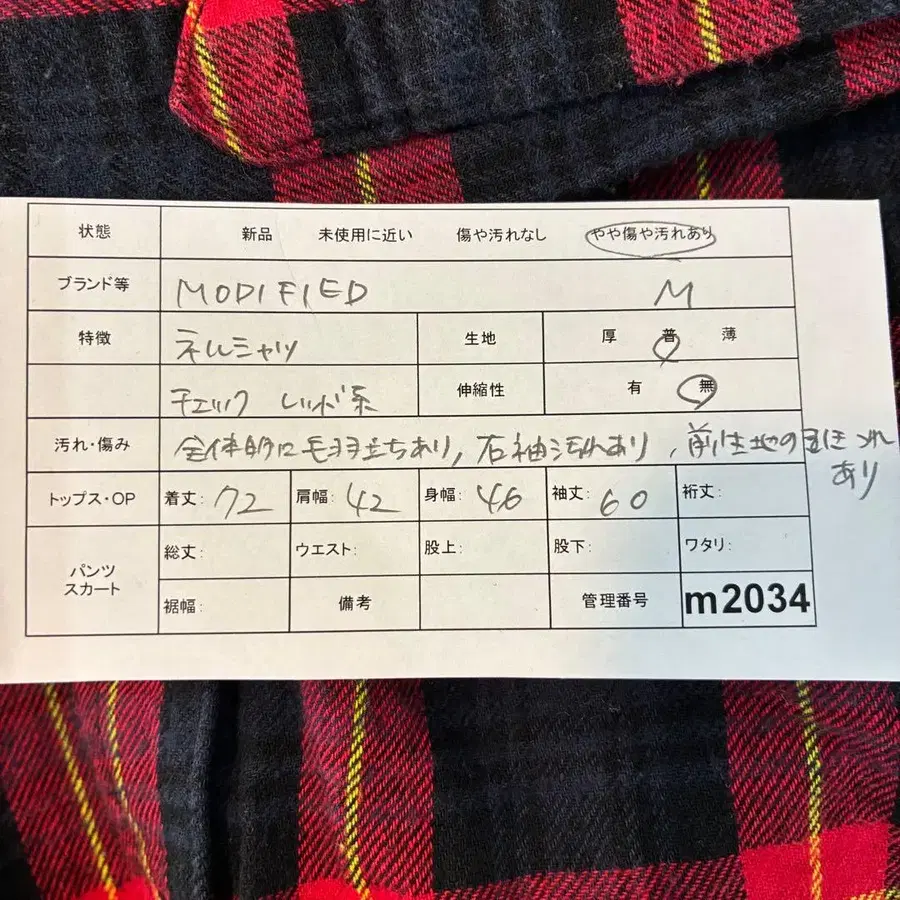 状態 新品 未使用に近い 傷や汚れなし やや傷や汚れあり
ブランド等 MODIFIED M
特徴 ネルシャツ 生地 厚 普 薄
チェック レッド系 伸縮性 有 無
汚れ・傷み 全体的に毛羽立ちあり, 右袖汚れあり, 前生地の引きつれ
あり
トップス・OP 着丈: 72 肩幅: 42 身幅: 46 袖丈: 60 裄丈:
パンツ
スカート
総丈: ウエスト: 股上: 股下: ワタリ:
裾幅: 備考 管理番号 m2034